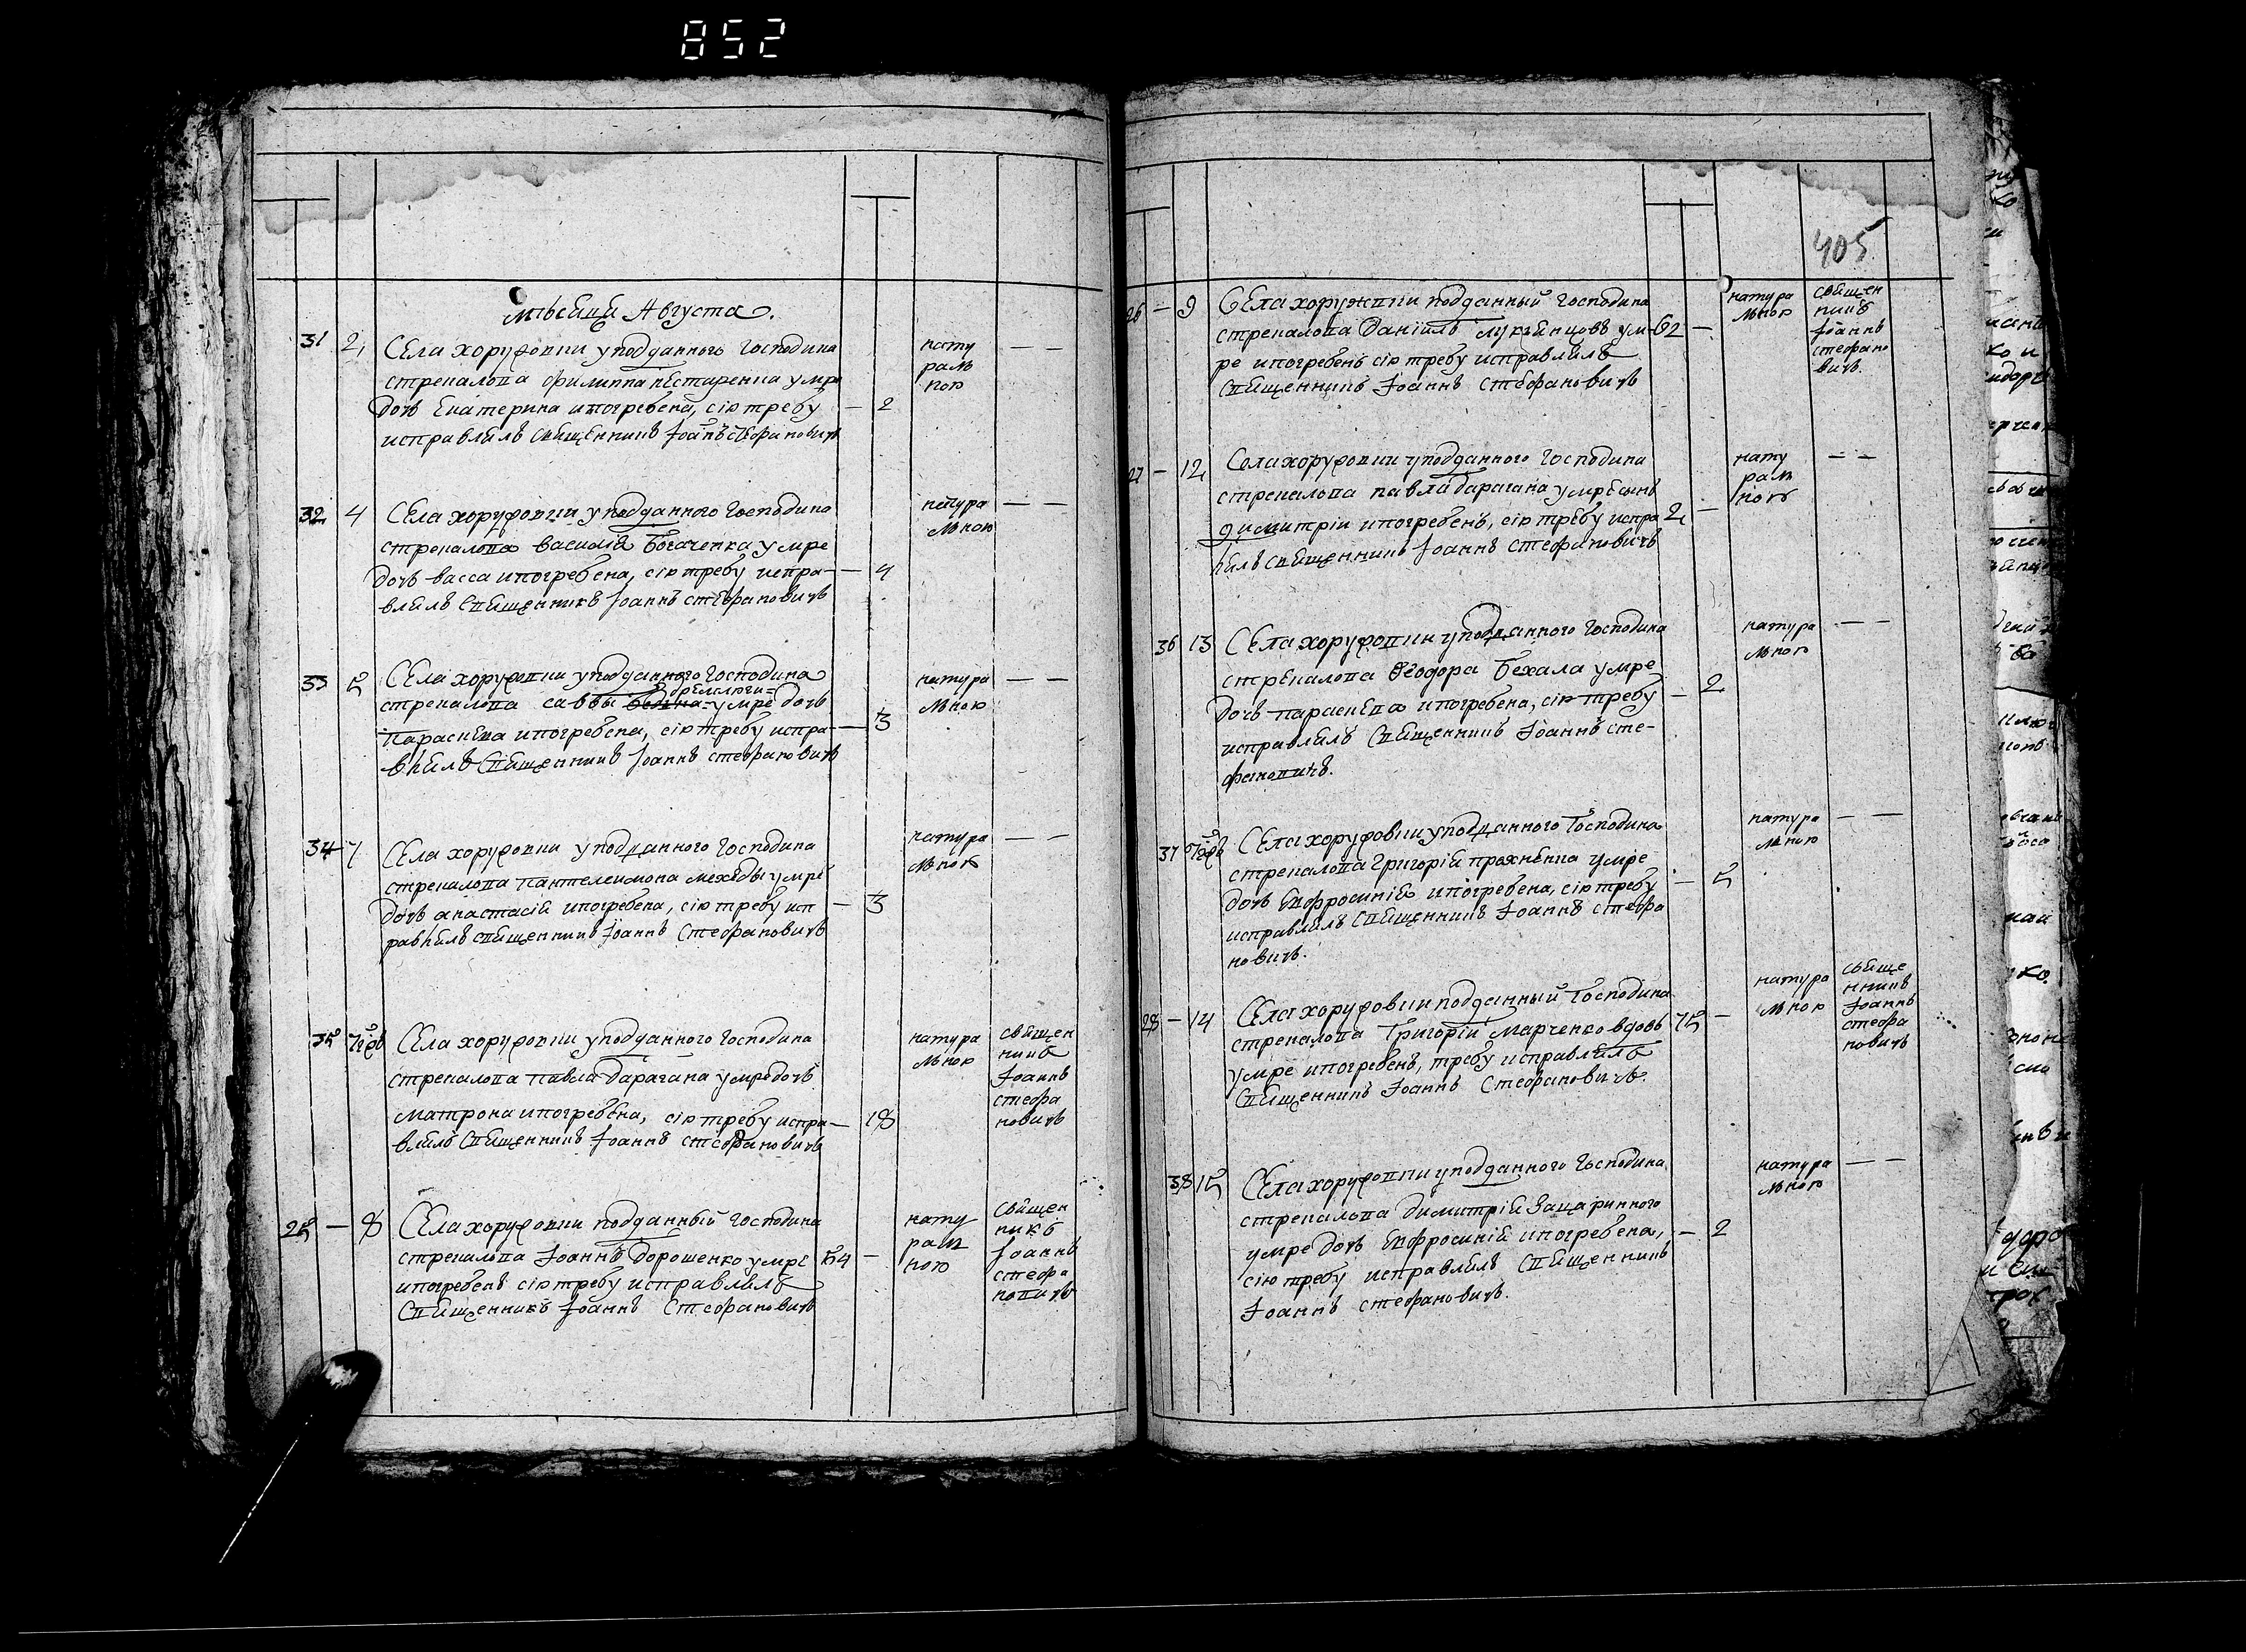 852
мѣсяца Августа.
31 2 Села хоружовки уподданного Господина
стрекалова филиппа нестеренка умре
дочь Екатерина ипогребена, сію требу — 2
исправлялъ Священникъ Іоаннъ Стефановичъ
натуральною — —
32 4 Села хоружовки уподданного Господина
стрекалова василія Богаченка умре
дочь васса ипогребена, сію требу испра- — 4
влялъ Священникъ Іоаннъ стефановичъ
натуральною — —
33 5 Села хоружовки уподданного Господина
стрекалова саввы умре дочь
параскева ипогребена, сію требу испра- — 3
влялъ Священникъ Іоаннъ стефановичъ
натуральною — —
34 7 Села хоружовки уподданного Господина
стрекалова пантелеимона мехеды умре
дочь анастасія ипогребена, сію требу исп — 3
равлялъ священникъ Іоаннъ Стефановичъ
натуральною — —
35 Села хоружовки уподданного Господина
стрекалова павла дарагана умре дочь
матрона ипогребена, сію требу испра- — 18
влялъ Священникъ Іоаннъ стефановичъ
натуральною
священникъ Іоаннъ стефановичъ
25 — 8 Села хоружовки подданный Господина
стрекалова Іоаннъ Дорошенко умре 54 —
ипогребенъ сію требу исправлялъ
Священникъ Іоаннъ Стефановичъ
натуральною
священникъ Іоаннъ стефановичъ
405
26 — 9 Села хоружовки подданный Господина
стрекалова Даніилъ лукъянцовъ ум- 62 —
ре ипогребенъ сію требу исправлялъ
Священникъ Іоаннъ Стефановичъ
натуральною
священникъ Іоаннъ стефановичъ.
27 — 12 Села хоружовки уподданного Господина
стрекалова павла дарагана умре сынъ
димитрій ипогребенъ, сію требу испра 2 —
влялъ священникъ Іоаннъ Стефановичъ
натуральною — —
36 13 Села хоружовки уподданного Господина
стрекалова Феодора Бехала умре
дочь параскева ипогребена, сію требу — 2
исправлялъ Священникъ Іоаннъ сте-
фановичъ.
натуральною — —
37 Села хоружовки уподданного Господина
стрекалова Григорія прохненка умре
дочь Евфросинія ипогребена, сію требу — 5
исправлялъ Священникъ Іоаннъ стефа
новичъ.
натуральною — —
28 — 14 Села хоружовки подданный Господина
стрекалова Григорій Марченко вдовъ 75 —
умре ипогребенъ, требу исправлялъ
Священникъ Іоаннъ Стефановичъ.
натуральною
священникъ Іоаннъ стефановичъ
38 15 Села хоружовки уподданного Господина
стрекалова димитрія Защаринного
умре дочь Евфросинія ипогребена, — 2
сію требу исправлялъ Священникъ
Іоаннъ стефановичъ.
натуральною — —